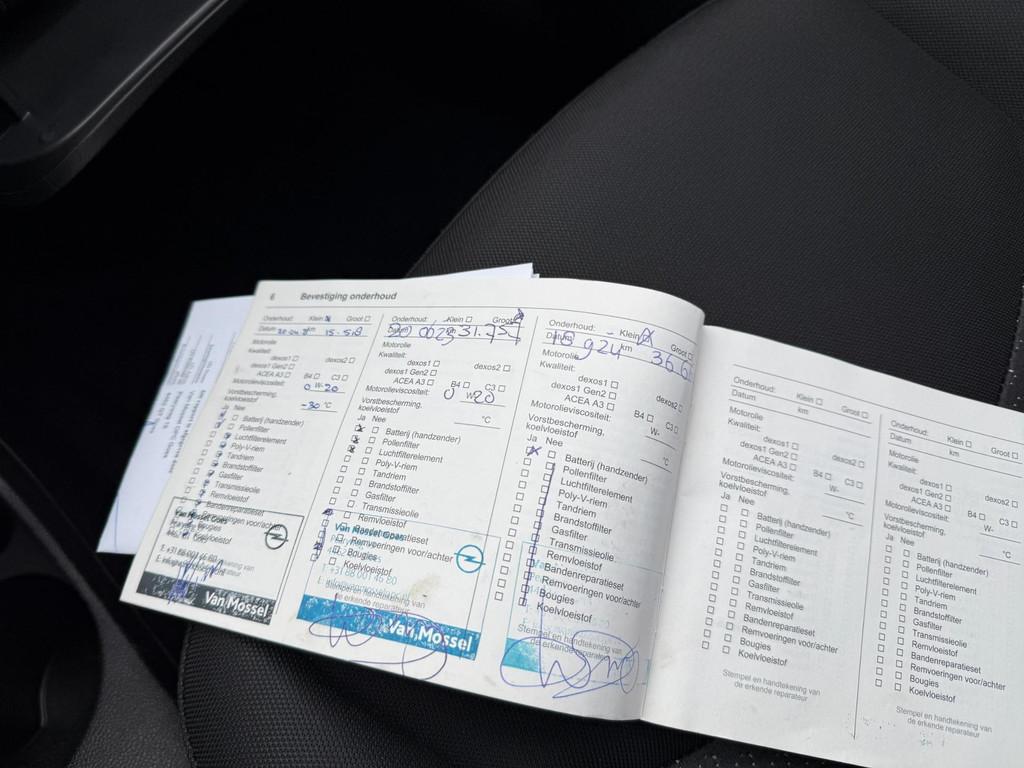 6 Bevestiging onderhoud
Onderhoud: Klein Groot
Datum km 15.518
Motorolie
Kwaliteit:
dexos1 dexos2
dexos1 Gen2
ACEA A3 B4 C3
Motorolieviscositeit: 0 W- 20
Vorstbescherming,
koelvloeistof -30 °C
Ja Nee
Batterij (handzender)
Pollenfilter
Luchtfilterelement
Poly-V-riem
Tandriem
Brandstoffilter
Gasfilter
Transmissieolie
Remvloeistof
Bandenreparatieset
Remvoeringen voor/achter
Bougies
Koelvloeistof
Van Mossel Goes
Van Mossel
Onderhoud: Klein Groot
Datum km
Motorolie
Kwaliteit:
dexos1 dexos2
dexos1 Gen2
ACEA A3 B4 C3
Motorolieviscositeit: 0 W- 20
Vorstbescherming,
koelvloeistof °C
Ja Nee
Batterij (handzender)
Pollenfilter
Luchtfilterelement
Poly-V-riem
Tandriem
Brandstoffilter
Gasfilter
Transmissieolie
Remvloeistof
Bandenreparatieset
Remvoeringen voor/achter
Bougies
Koelvloeistof
Van Mossel Goes
Stempel en handtekening van
de erkende reparateur
Van Mossel
Onderhoud: Klein Groot
Datum km
Motorolie
Kwaliteit:
dexos1 dexos2
dexos1 Gen2
ACEA A3 B4 C3
Motorolieviscositeit: W-
Vorstbescherming,
koelvloeistof °C
Ja Nee
Batterij (handzender)
Pollenfilter
Luchtfilterelement
Poly-V-riem
Tandriem
Brandstoffilter
Gasfilter
Transmissieolie
Remvloeistof
Bandenreparatieset
Remvoeringen voor/achter
Bougies
Koelvloeistof
Stempel en handtekening van
de erkende reparateur
Onderhoud: Klein Groot
Datum km
Motorolie
Kwaliteit:
dexos1 dexos2
dexos1 Gen2
ACEA A3 B4 C3
Motorolieviscositeit: W-
Vorstbescherming,
koelvloeistof °C
Ja Nee
Batterij (handzender)
Pollenfilter
Luchtfilterelement
Poly-V-riem
Tandriem
Brandstoffilter
Gasfilter
Transmissieolie
Remvloeistof
Bandenreparatieset
Remvoeringen voor/achter
Bougies
Koelvloeistof
Stempel en handtekening van
de erkende reparateur
Onderhoud: Klein Groot
Datum km
Motorolie
Kwaliteit:
dexos1 dexos2
dexos1 Gen2
ACEA A3 B4 C3
Motorolieviscositeit: W-
Vorstbescherming,
koelvloeistof °C
Ja Nee
Batterij (handzender)
Pollenfilter
Luchtfilterelement
Poly-V-riem
Tandriem
Brandstoffilter
Gasfilter
Transmissieolie
Remvloeistof
Bandenreparatieset
Remvoeringen voor/achter
Bougies
Koelvloeistof
Stempel en handtekening van
de erkende reparateur